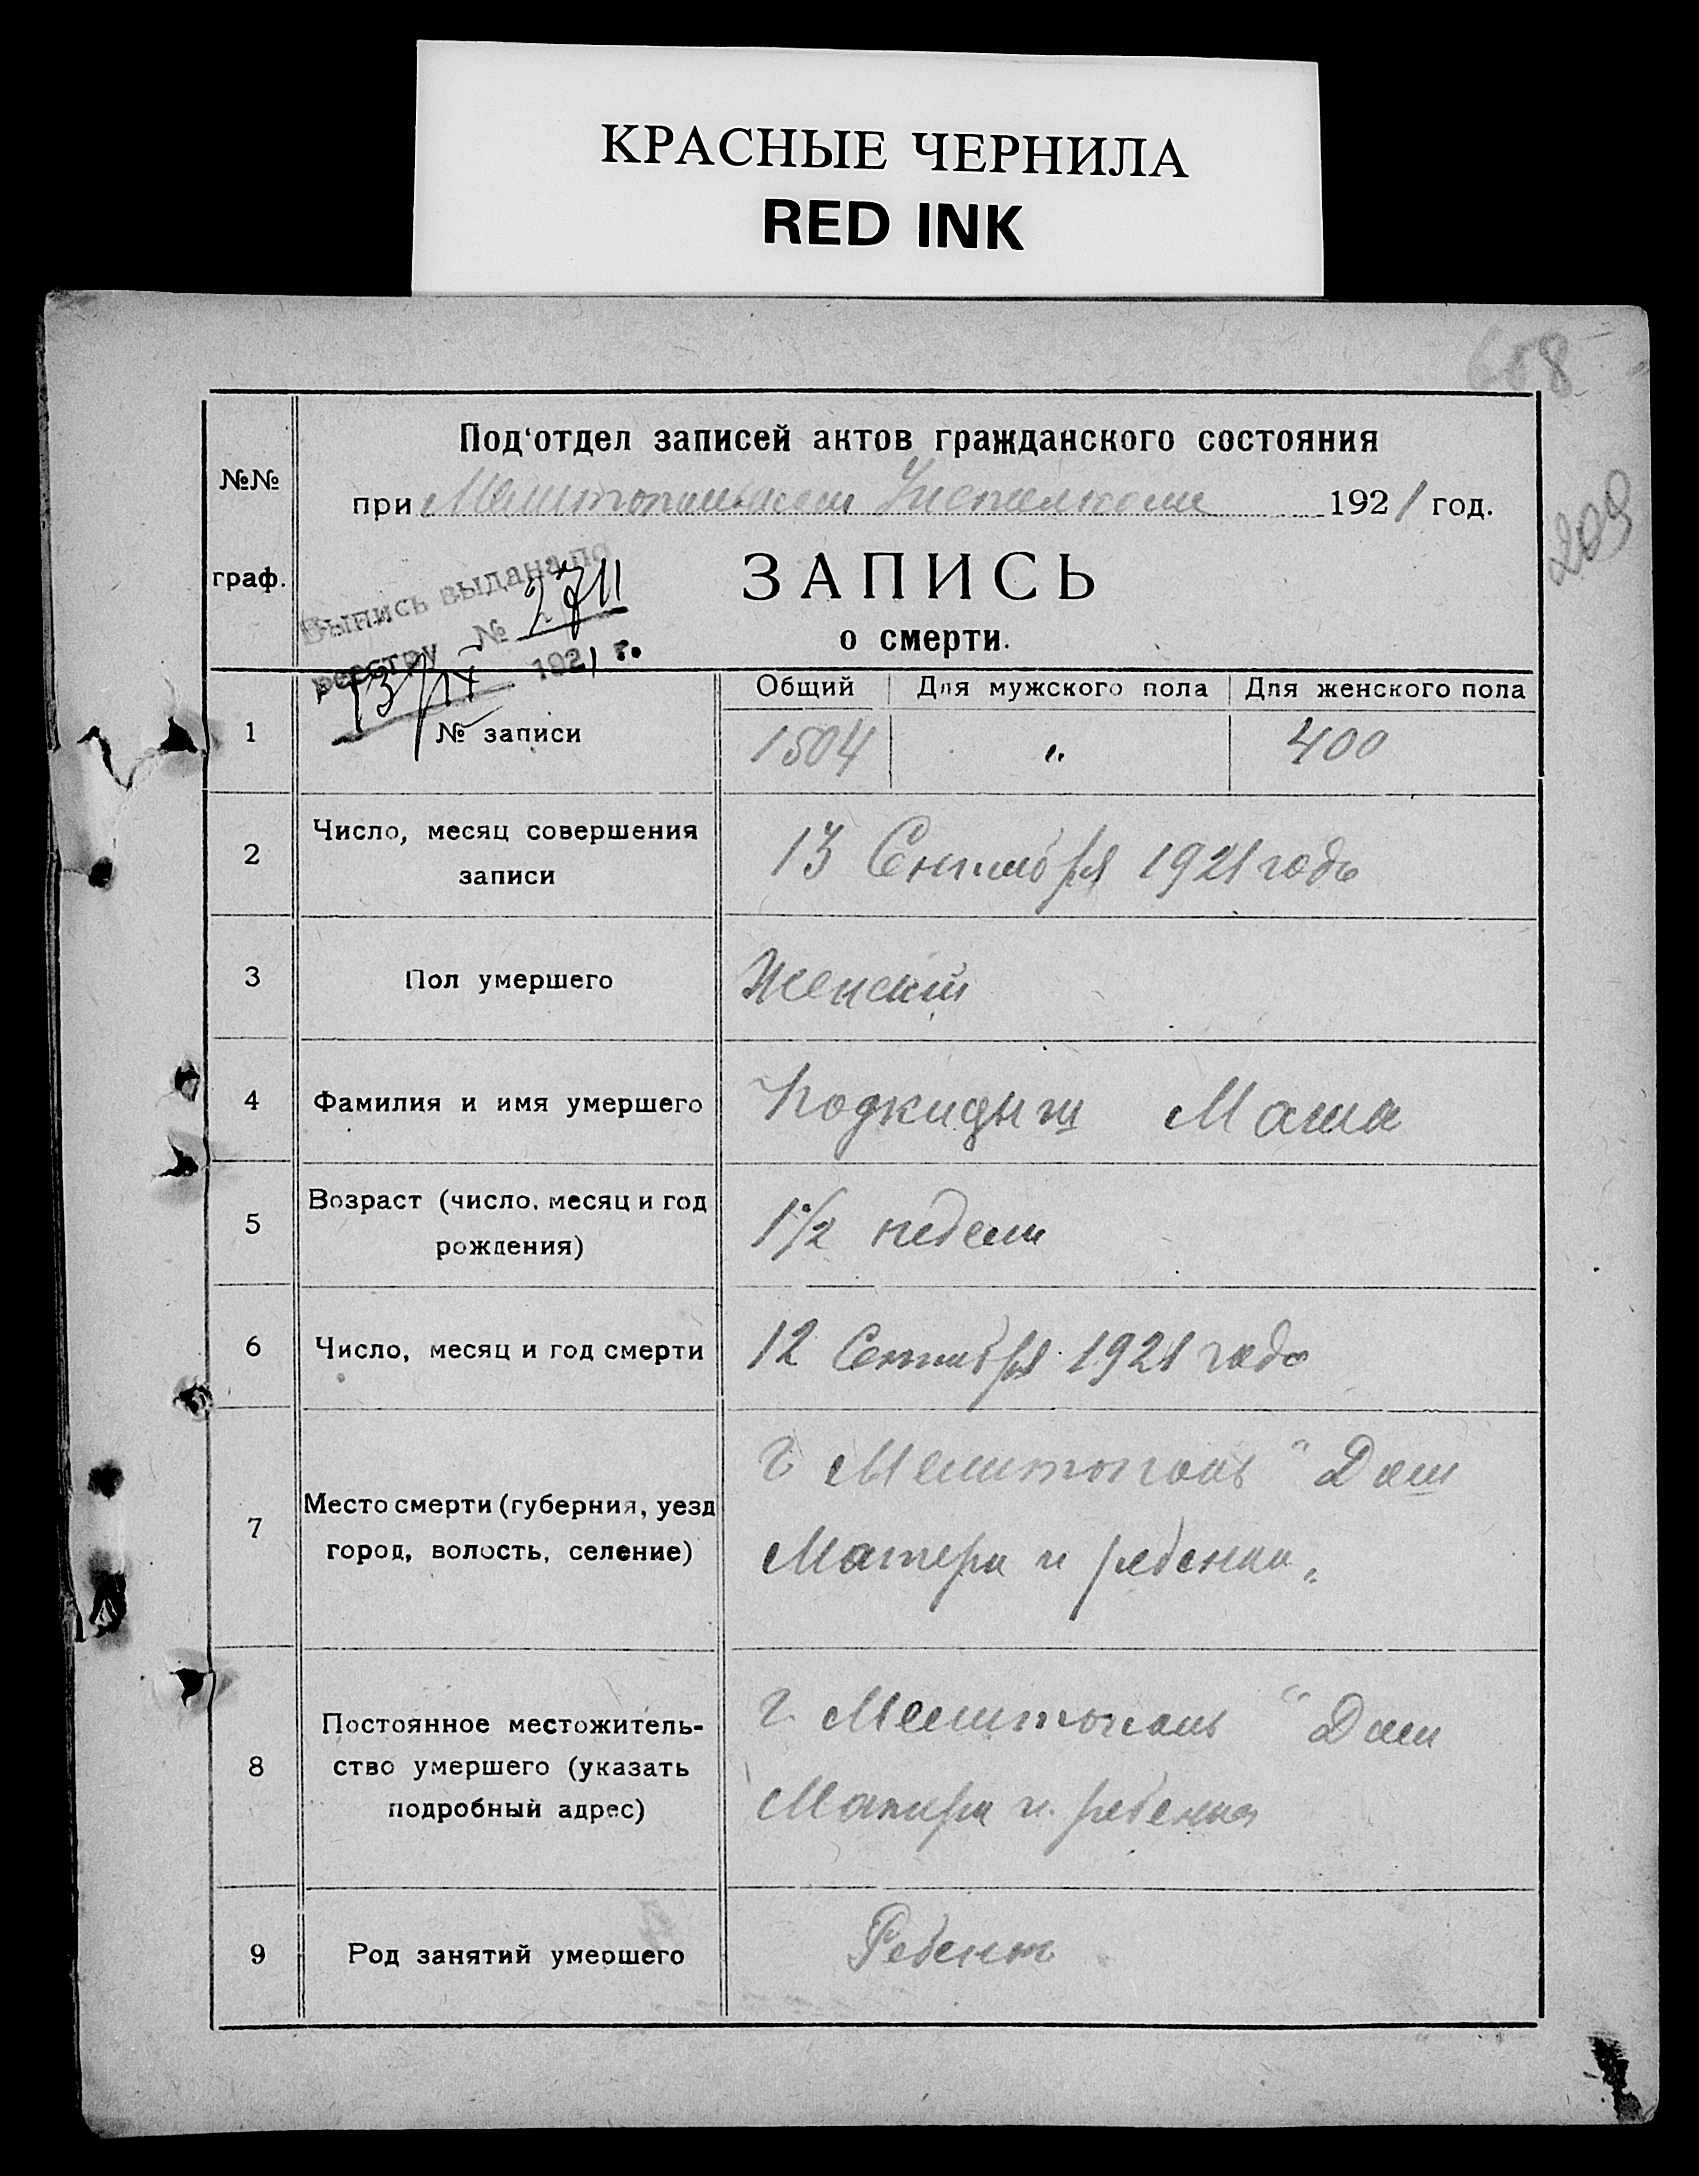 КРАСНЫЕ ЧЕРНИЛА
RED INK
608
209
№№
граф.
Под‘отдел записей актов гражданского состояния
при Мелитопольском 1921 год.
ЗАПИСЬ
о смерти.
Выпись выдана по
реестру № 2711
13/IX 1921 г.
Общий Для мужского пола Для женского пола
1 № записи 1504 " 400
2 Число, месяц совершения
записи
13 Сентября 1921 года
3 Пол умершего Женский
4 Фамилия и имя умершего Подкидыш Маша
5 Возраст (число, месяц и год
рождения)
1½ недели
6 Число, месяц и год смерти 12 Сентября 1921 года
7 Место смерти (губерния, уезд
город, волость, селение)
г. Мелитополь "Дом
Матери и ребенка"
8 Постоянное местожитель-
ство умершего (указать
подробный адрес)
г. Мелитополь "Дом
Матери и ребенка
9 Род занятий умершего Ребенок